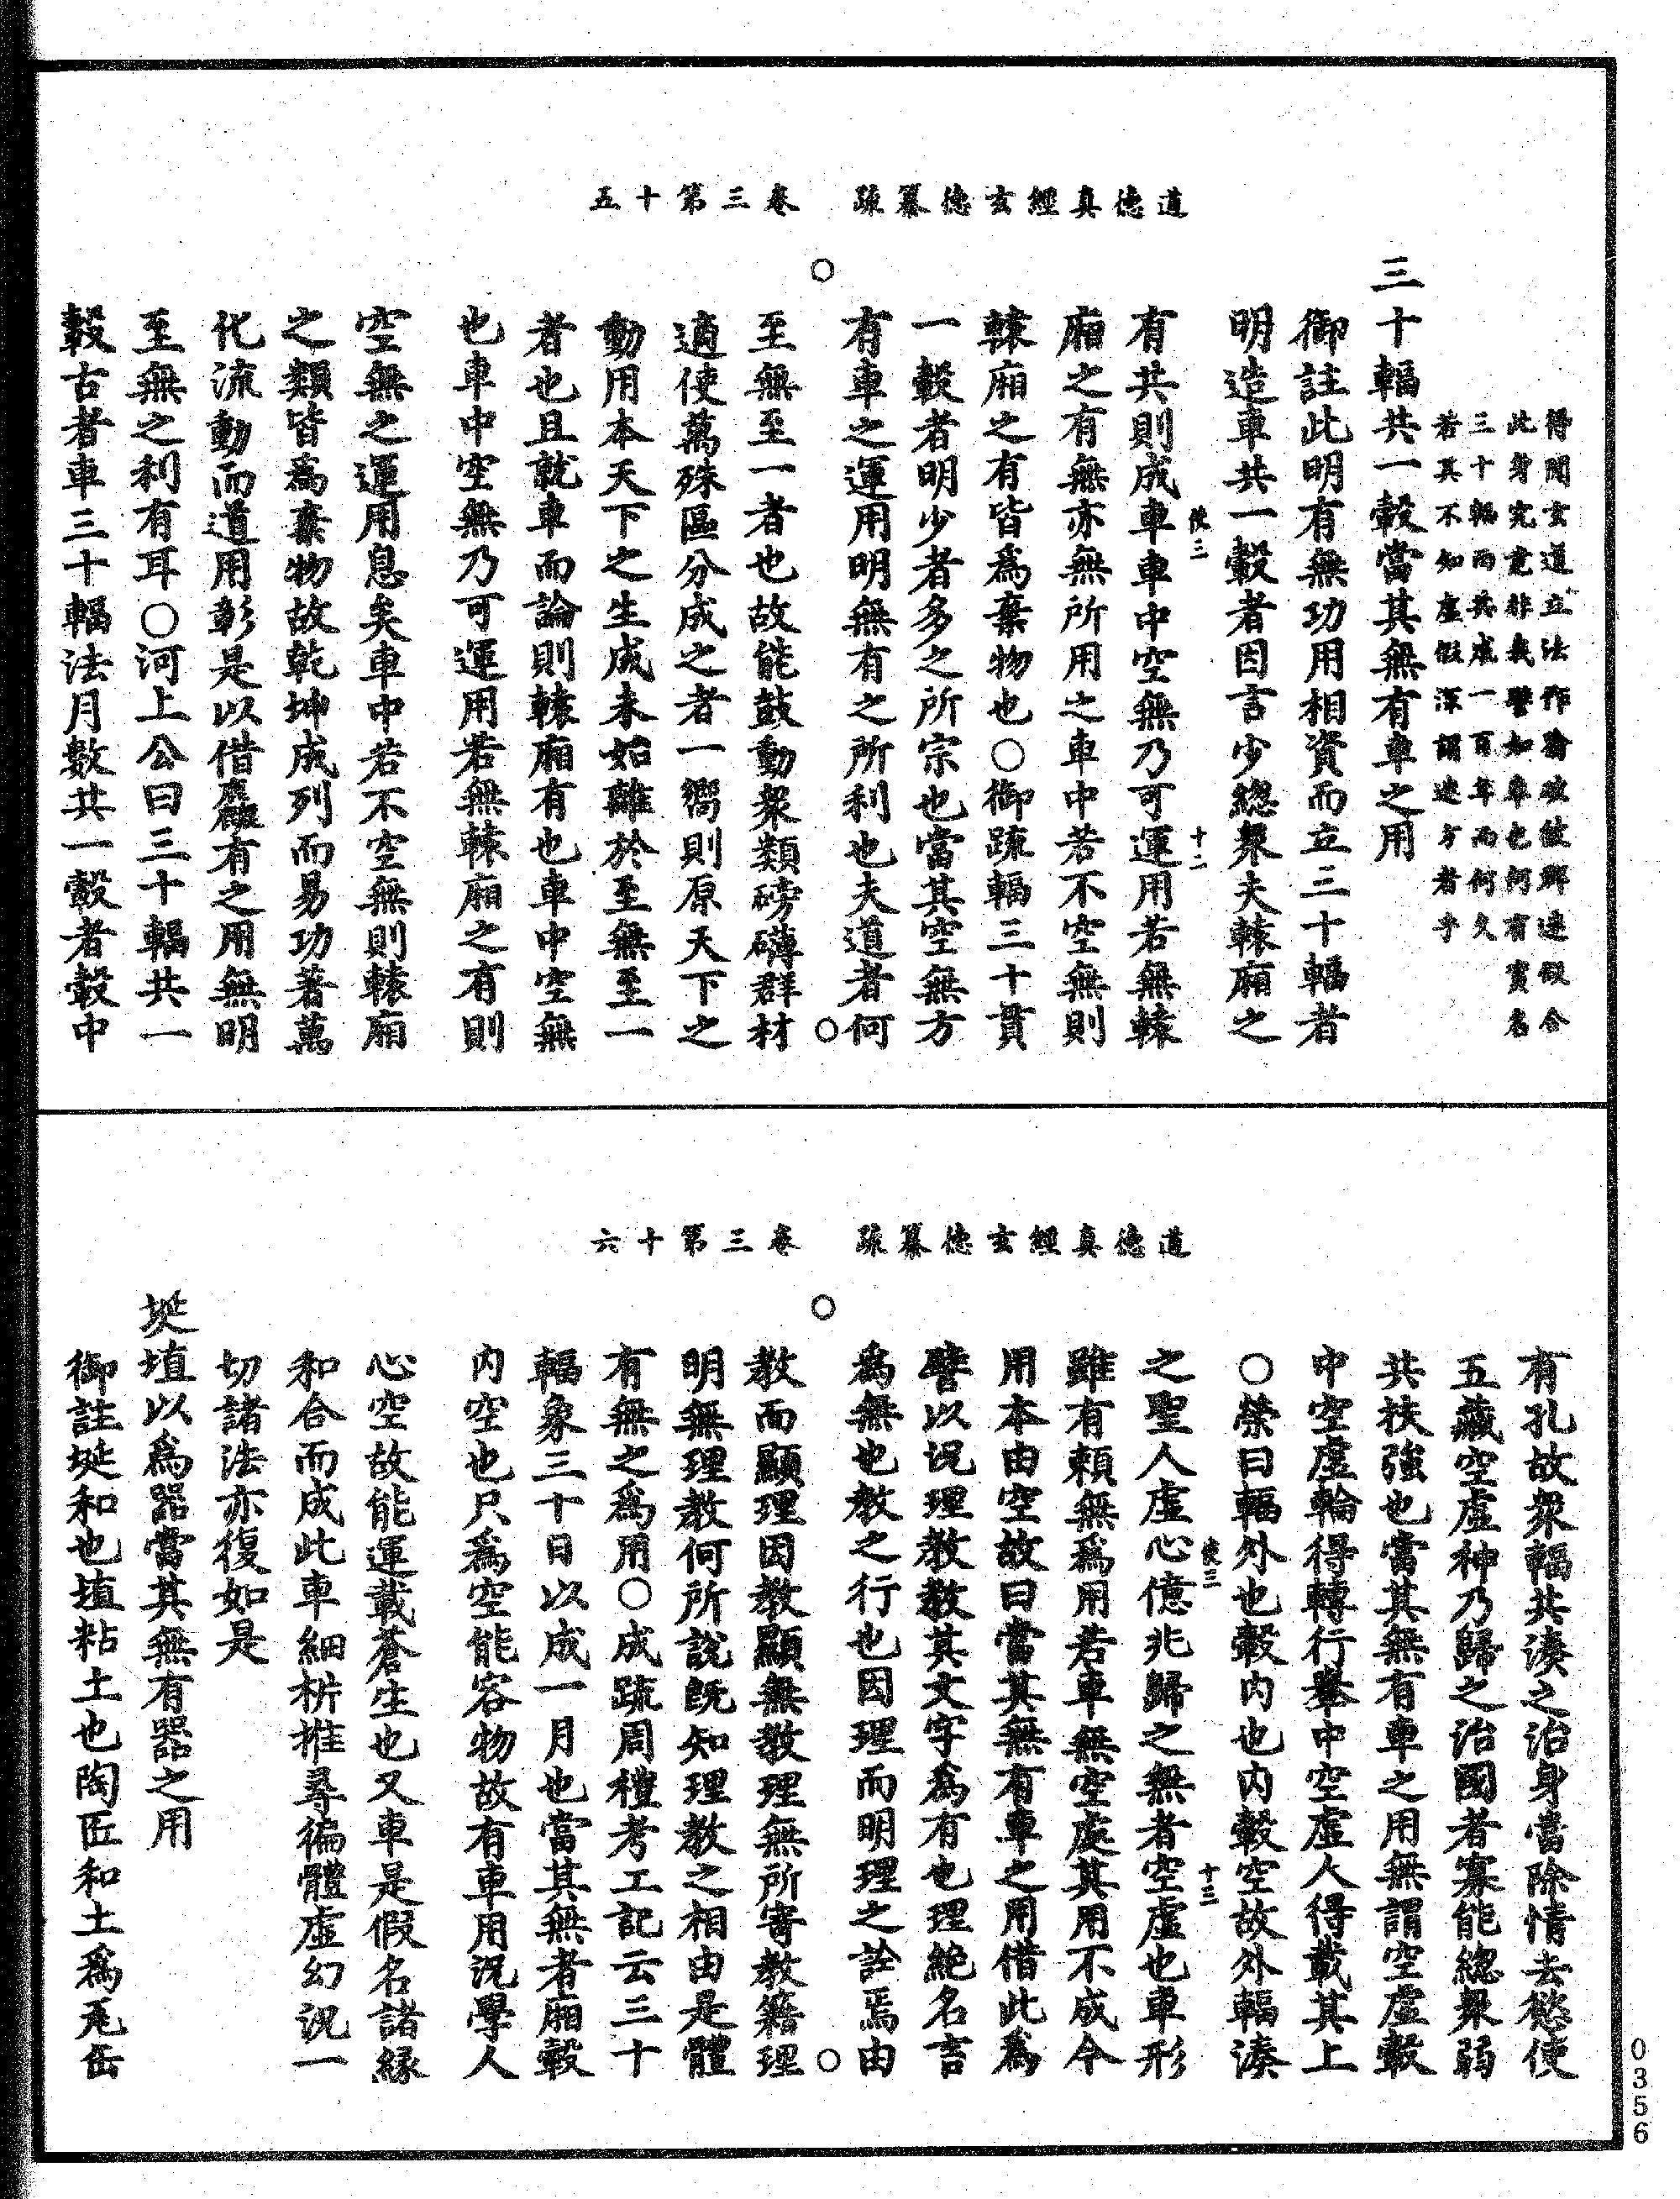 道德真經玄德纂疏　卷三第十五
得聞玄道立法作喻破彼邪迷假合
此身究竟非我譬如車也何有實名
三十輻而共成一百年而何久
若其不知虛假深謂迷方者乎
三十輻共一轂當其無有車之用
御註此明有無功用相資而立三十輻者
明造車共一轂者因言少總衆夫轅廂之
有共則成車車中空無乃可運用若無轅
俠三　十二
廂之有無亦無所用之車中若不空無則
轅廂之有皆爲棄物也○御疏輻三十貫
一轂者明少者多之所宗也當其空無方
有車之運用明無有之所利也夫道者何
至無至一者也故能鼓動衆類磅礴群材
適使萬殊區分成之者一嚮則原天下之
動用本天下之生成未始離於至無至一
者也且就車而論則轅廂有也車中空無
也車中空無乃可運用若無轅廂之有則
空無之運用息矣車中若不空無則轅廂
之類皆爲棄物故乾坤成列而易功著萬
化流動而道用彰是以借麤有之用無明
至無之利有耳○河上公曰三十輻共一
轂古者車三十輻法月數共一轂者轂中
道德真經玄德纂疏　卷三第十六
有孔故衆輻共湊之治身當除情去慾使
五藏空虛神乃歸之治國者寡能總衆弱
共扶強也當其無有車之用無謂空虛轂
中空虛輪得轉行轝中空虛人得載其上
○榮曰輻外也轂内也内轂空故外輻湊
之聖人虛心億兆歸之無者空虛也車形
俠三　十三
雖有賴無爲用若車無空處其用不成今
用本由空故曰當其無有車之用借此爲
譬以況理教教其文字爲有也理絶名言
爲無也教之行也因理而明理之詮焉由
教而顯理因教顯無教理無所寄教籍理
明無理教何所說旣知理教之相由是體
有無之爲用○成疏周禮考工記云三十
輻象三十日以成一月也當其無者廂轂
内空也只爲空能容物故有車用況學人
心空故能運載蒼生也又車是假名諸緣
和合而成此車細析推尋徧體虛幻況一
切諸法亦復如是
埏埴以爲器當其無有器之用
御註埏和也埴粘土也陶匠和土爲瓦缶
0356